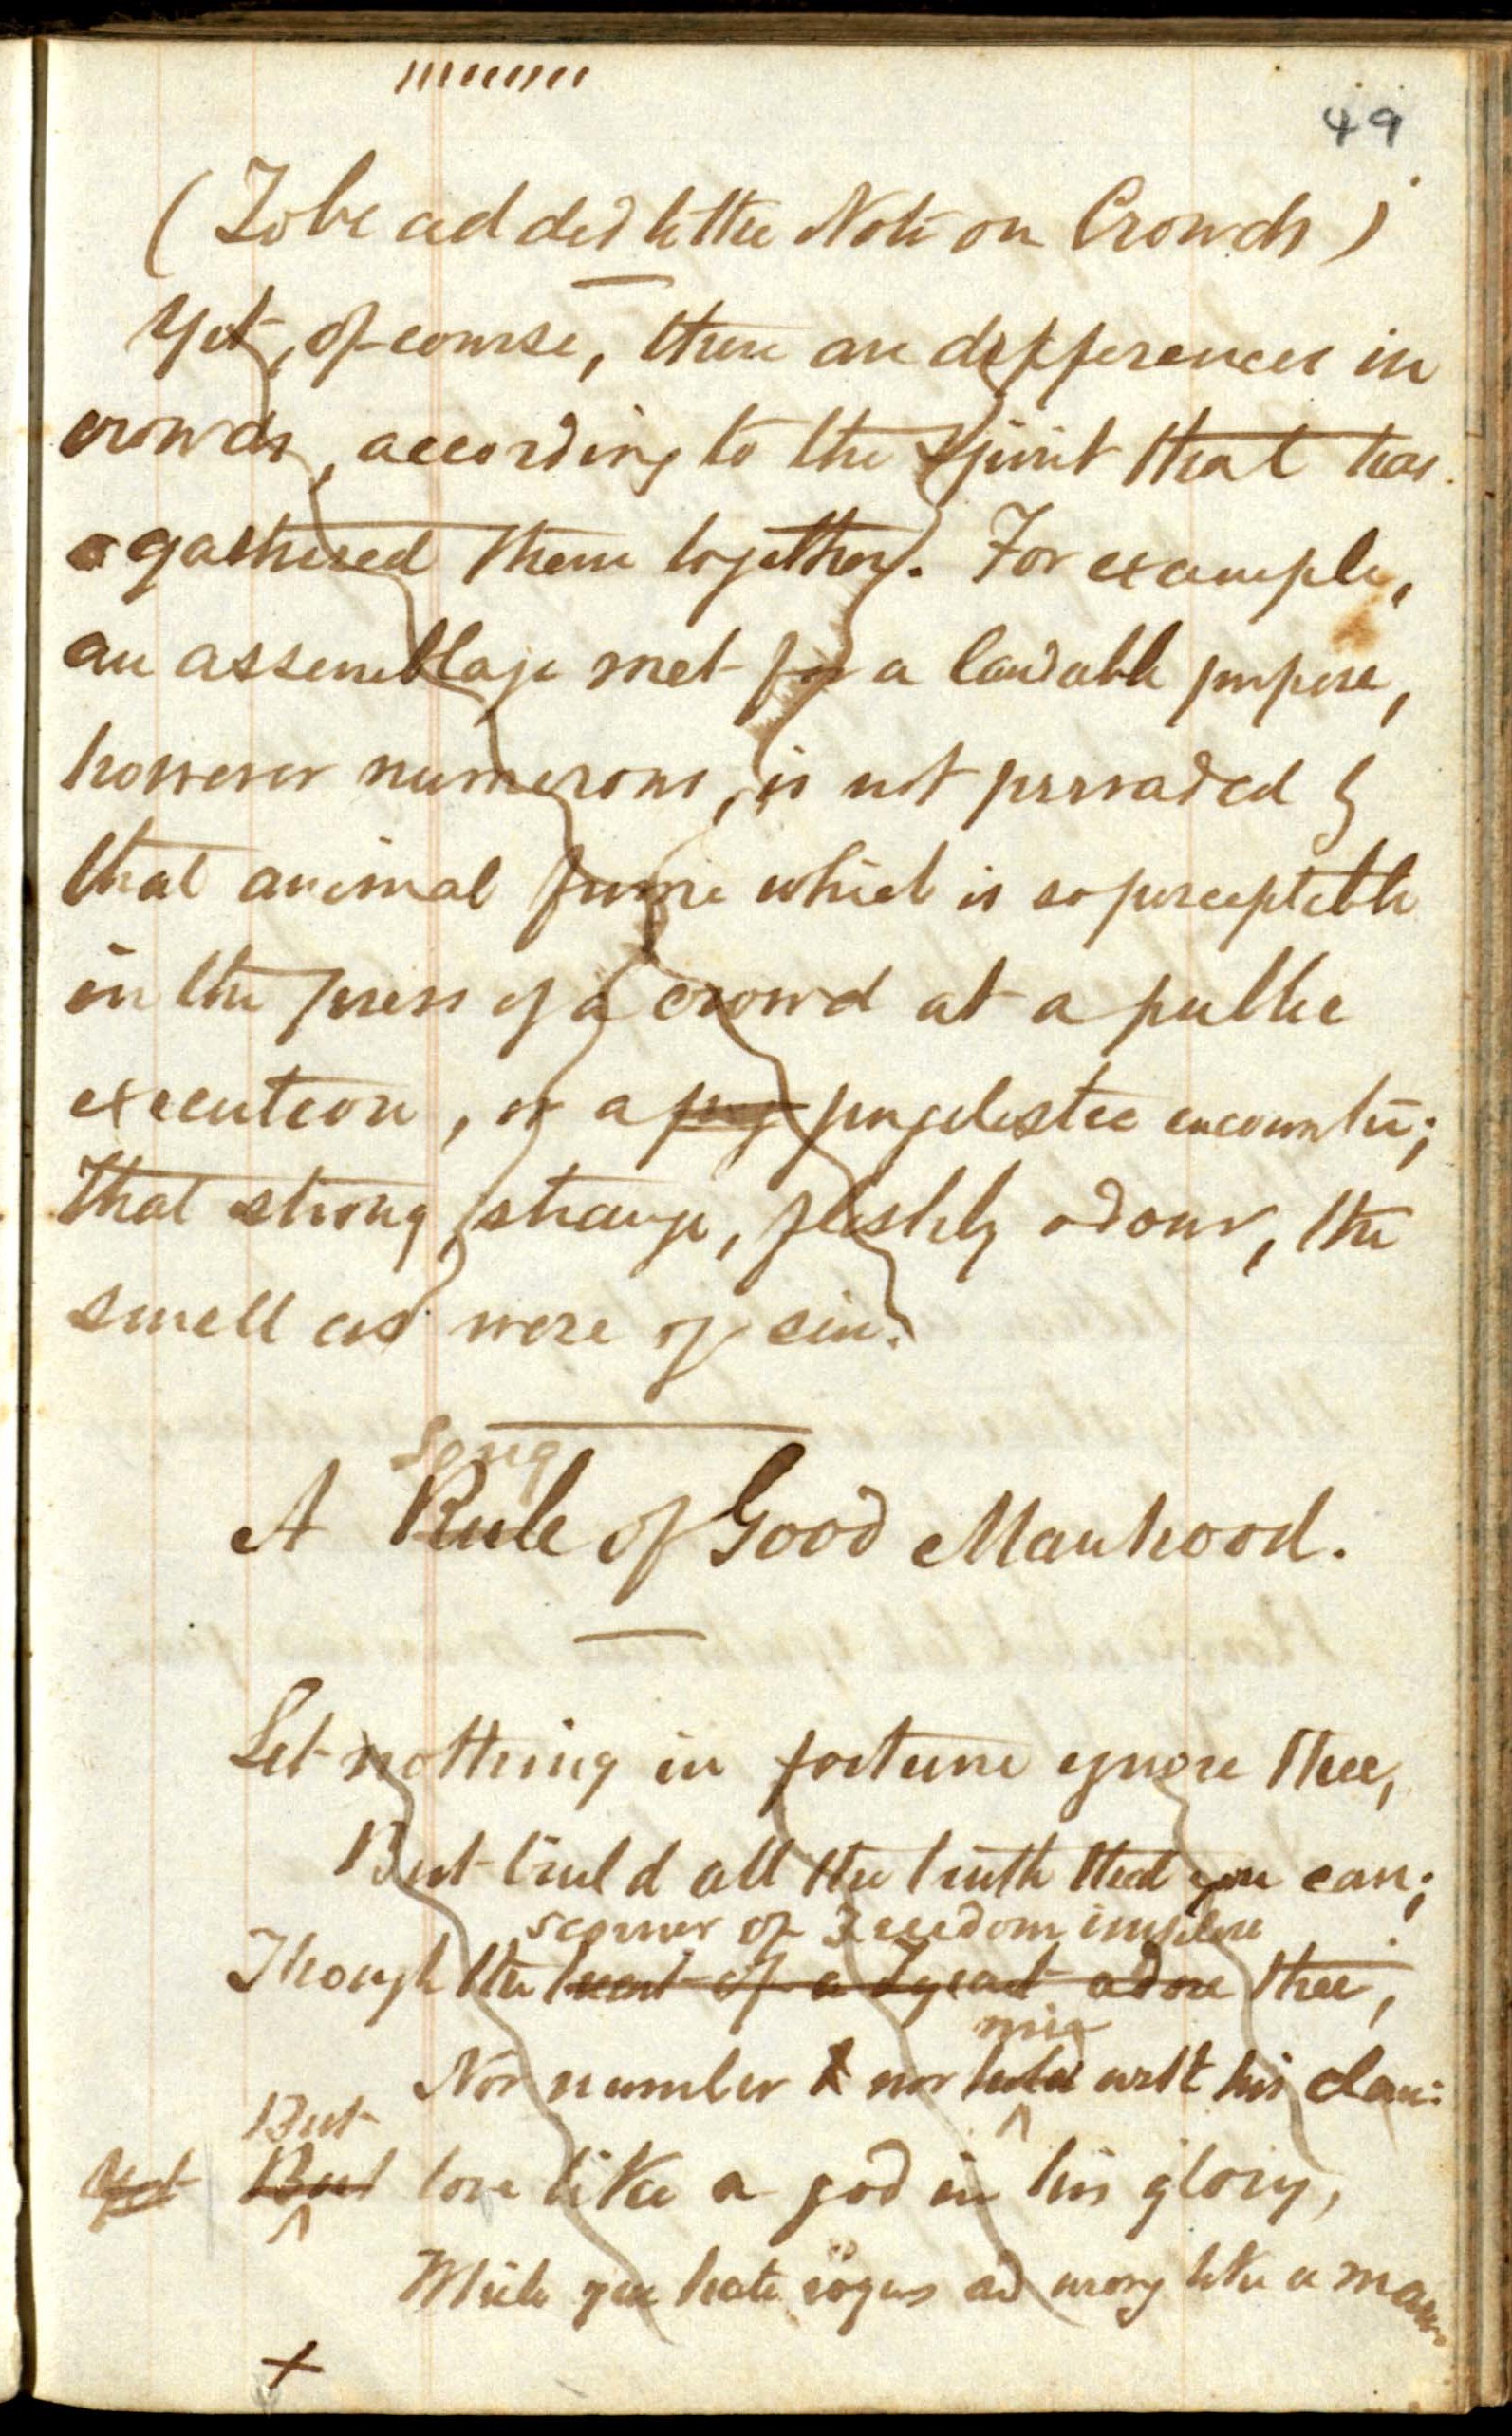 49
(To be added to the Note on Crowds)
Yet, of course, there are differences in
crowds, according to the spirit that has
gathered them together. For example,
an assemblage met for a laudable purpose,
however numerous, is not pervaded by
that animal fume which is so perceptible
in the press of a crowd at a public
execution, or a pug pugilistic encounter;
that strong, strange, fleshly odour, the
smell as were of sin.
Song
A Rule of Good Manhood.
Let nothing in fortune ignore thee,
But build all the truth that you can;
scorner of Freedom implore
Though the heart of a Tyrant adore thee,
mix
Nor number nor with his clan:
But
Yet But love like a god in his glory,
While you hate rogues and wrong like a man.